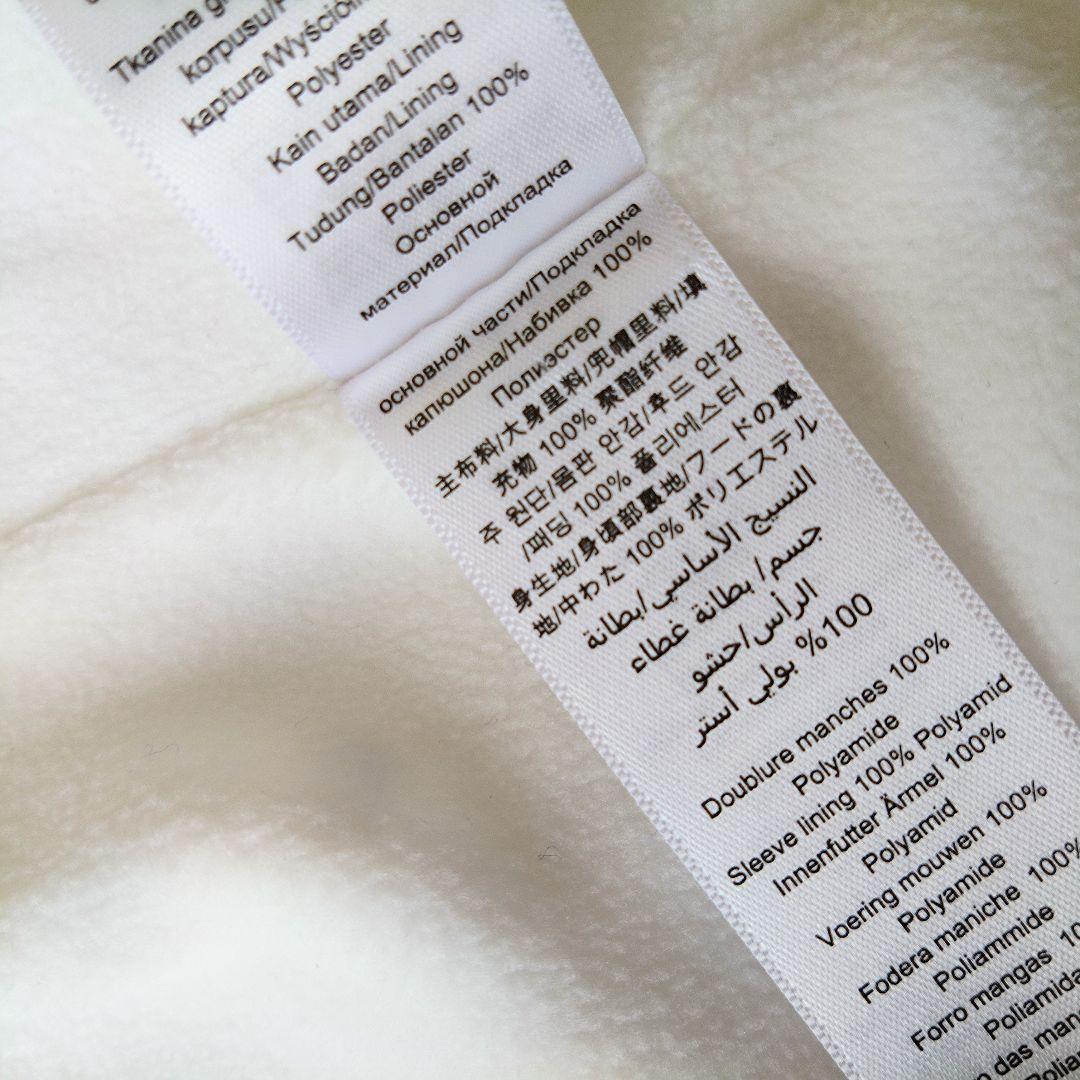 Tkanina
korpusu/
kaptura/Wyściół
Polyester
Kain utama/Lining
Badan/Lining
Tudung/Bantalan 100%
Poliester
Основной
материал/Подкладка
основной части/Подкладка
капюшона/Набивка 100%
Полиэстер
主布料/大身里料/兜帽里料/填
充物 100% 聚酯纤维
주 원단/몸판 안감/후드 안감
/패딩 100% 폴리에스터
身生地/身頃部裏地/フードの裏
地/中わた 100% ポリエステル
النسيج الأساسي/بطانة
جسم/ بطانة غطاء
الرأس/حشو
100% بولي أستر
Doublure manches 100%
Polyamide
Sleeve lining 100% Polyamid
Innenfutter Ärmel 100%
Polyamid
Voering mouwen 100%
Polyamide
Fodera maniche 100%
Poliammide
Forro mangas 10
Poliamida
das man